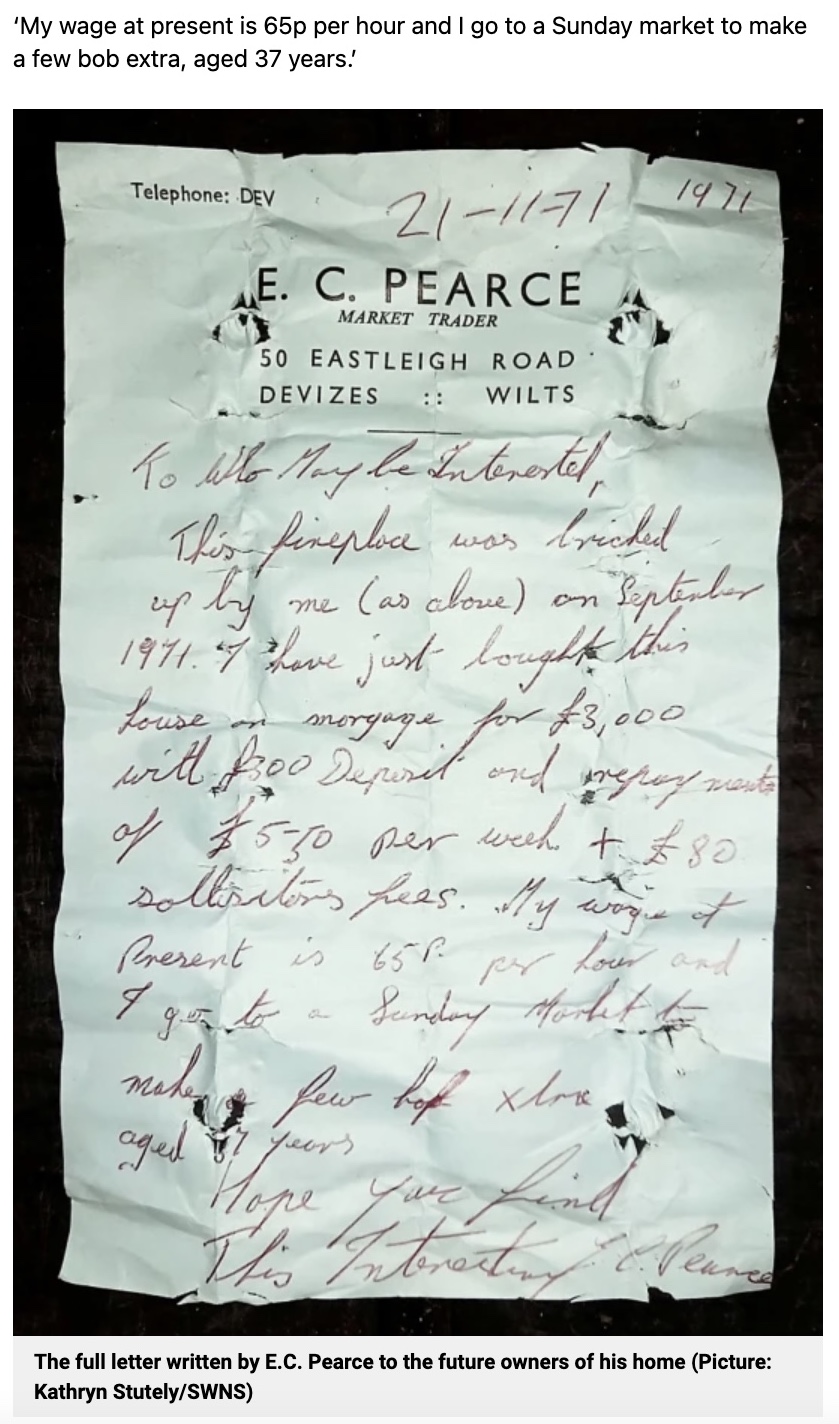 ‘My wage at present is 65p per hour and I go to a Sunday market to make
a few bob extra, aged 37 years.’
Telephone: DEV
21-11-71 1971
E. C. PEARCE
MARKET TRADER
50 EASTLEIGH ROAD
DEVIZES :: WILTS
To Who May be Interested,
This fireplace was bricked
up by me (as above) on September
1971. I have just bought this
house on morgage for £3,000
with £300 Deposit and repayments
of £5-50 per week + £80
sollisitors fees. My wage at
Present is 65P. per hour and
I go to a Sunday Market to
make a few bob xtra
aged 7 years
Hope you find
This Interesting E. C. Pearce
The full letter written by E.C. Pearce to the future owners of his home (Picture:
Kathryn Stutely/SWNS)